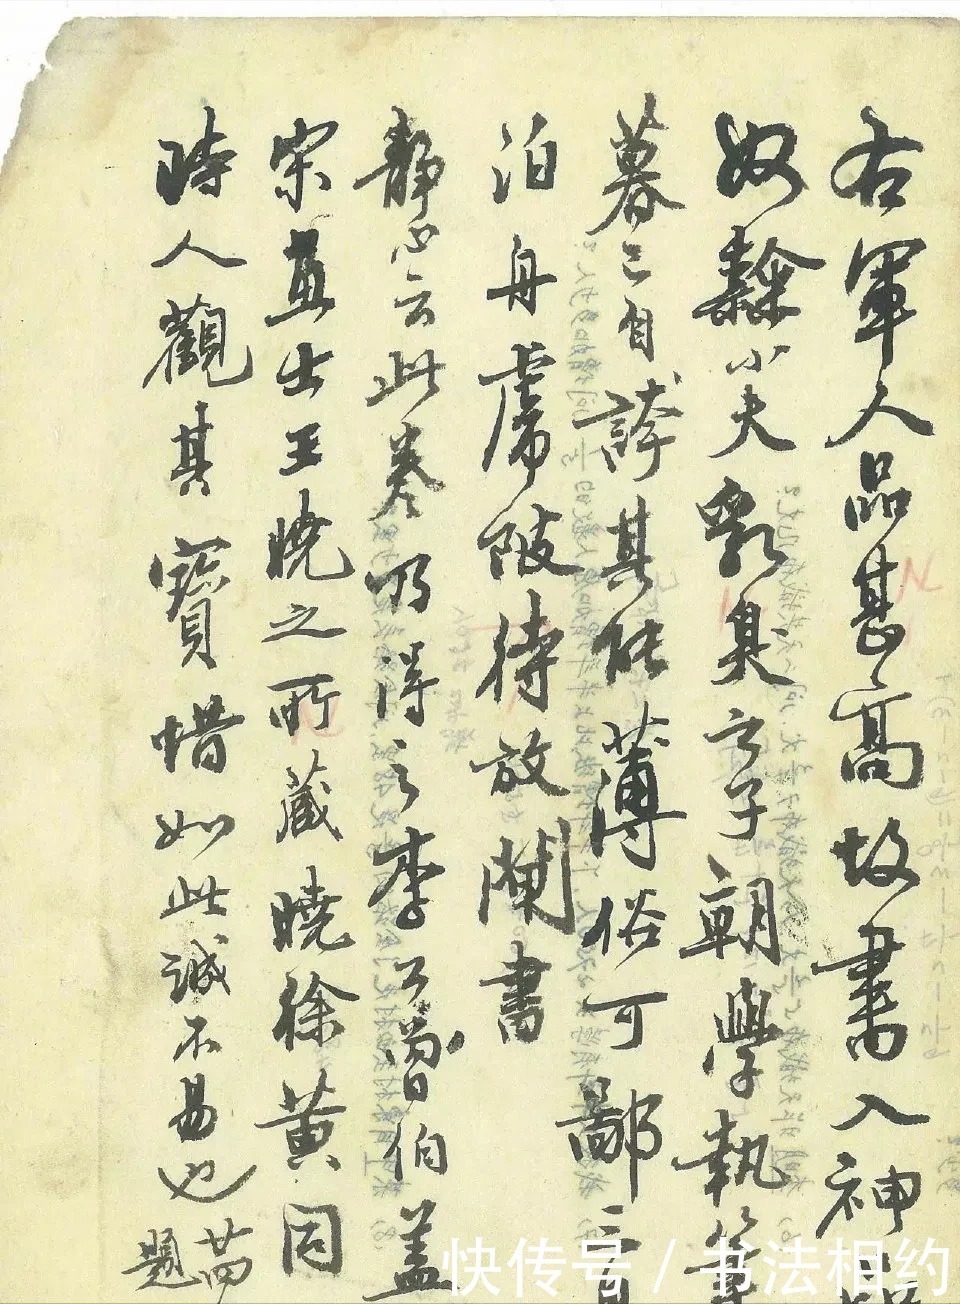 右軍人品甚高故書入神品
奴隸小夫乳臭之子朝學執筆
暮已自誇其能薄俗可鄙
泊舟虜陂待放閘書
静心云此卷乃得之李公曾伯蓋
宋直士王曉之所藏曉徐黄同
時人觀其寶惜如此誠不易也
题
快传号/书法相约